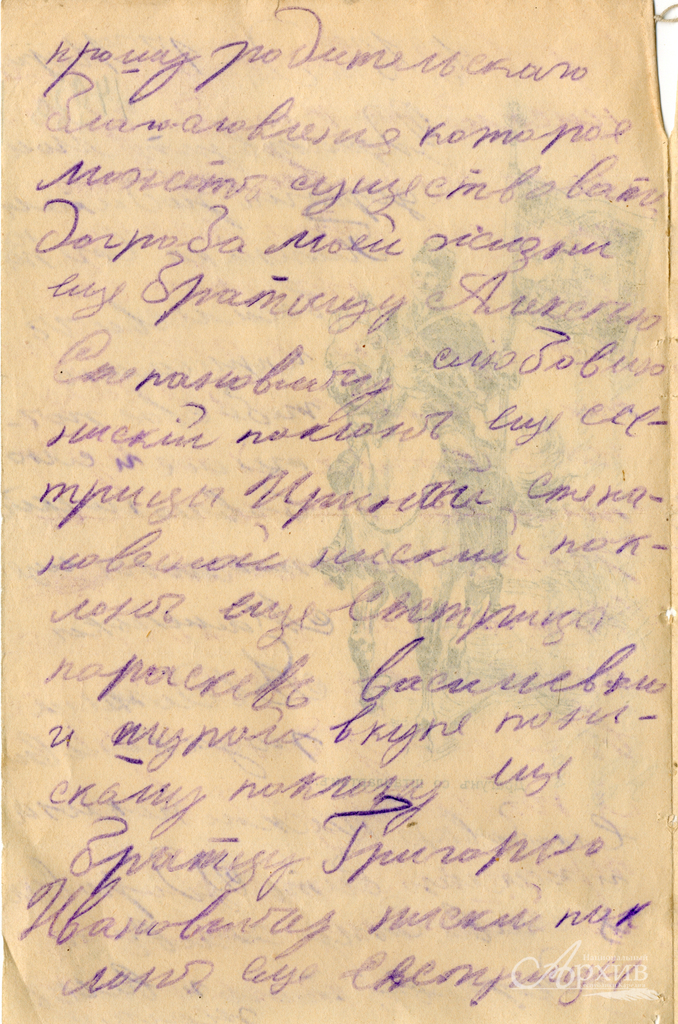 прошу родительскаго
благаловгение которое
можетъ существовать
дограба моей жизни
еще братицу Алексею
Степановичу слюбовию
нискій поклонъ еще сес-
трицы Ириньи степа-
новешой ниский пок-
лонъ еще Састрица
парыскевъ василевною
и шурой вкупе пони-
скаму поклону еще
братцу Григорью
Ивановичу ниский пак
лонъ еще састрицу
Национальный
Архив